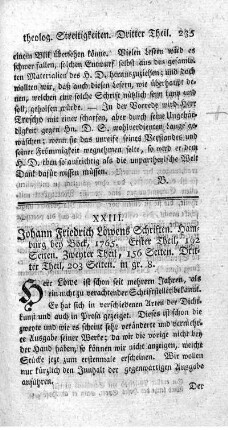 theolog. Streitigkeiten. Dritter Theil. 235
einem Blik übersehen könne. Vielen Lesern würd es
schwer fallen, solchen Entwurf selbst aus den gesamten
Materialien des H. D. herauszuziehen; und doch
wollten wir, daß auch diesen Lesern, wie überhaupt denen,
welchen eine solche Schrift nützlich seyn kann und
soll, geholfen würde. — In der Vorrede wird Herr
Trescho mit einer scharfen, aber durch seine Ungebühnlichkeit
gegen Hn. D. S. wohlverdienten
wenn so das Verhalten eines Verfassers
seiner Frömmigkeit
H. D. ihm so aufrichtig als die unpartheyische Welt
Dank dafür wissen müssen.
B.
XXIII.
Johann Friedrich Löwens Schriften. Hamburg
bey Bock, 1765. Erster Theil, 192
Seiten, Zweyter Theil, 156 Seiten. Dritter
Theil, 203 Seiten, in gr. 8.
Herr Löwe ist schon seit mehrern Jahren, als
ein nicht zu verachtender Schriftsteller bekannt.
Er hat sich in verschiedenen Arten der Dichtkunst
und auch in Prosa gezeiget. Dieses ist schon die
zweyte und wie es scheint sehr veränderte und vermehrte
Ausgabe seiner Werke; da wir die vorige nicht bey
der Hand haben, so können wir nicht anzeigen, welche
Stücke jetzt zum erstenmale erscheinen. Wir wollen
nur kürzlich den Inhalt der gegenwärtigen Ausgabe
anführen.
Der